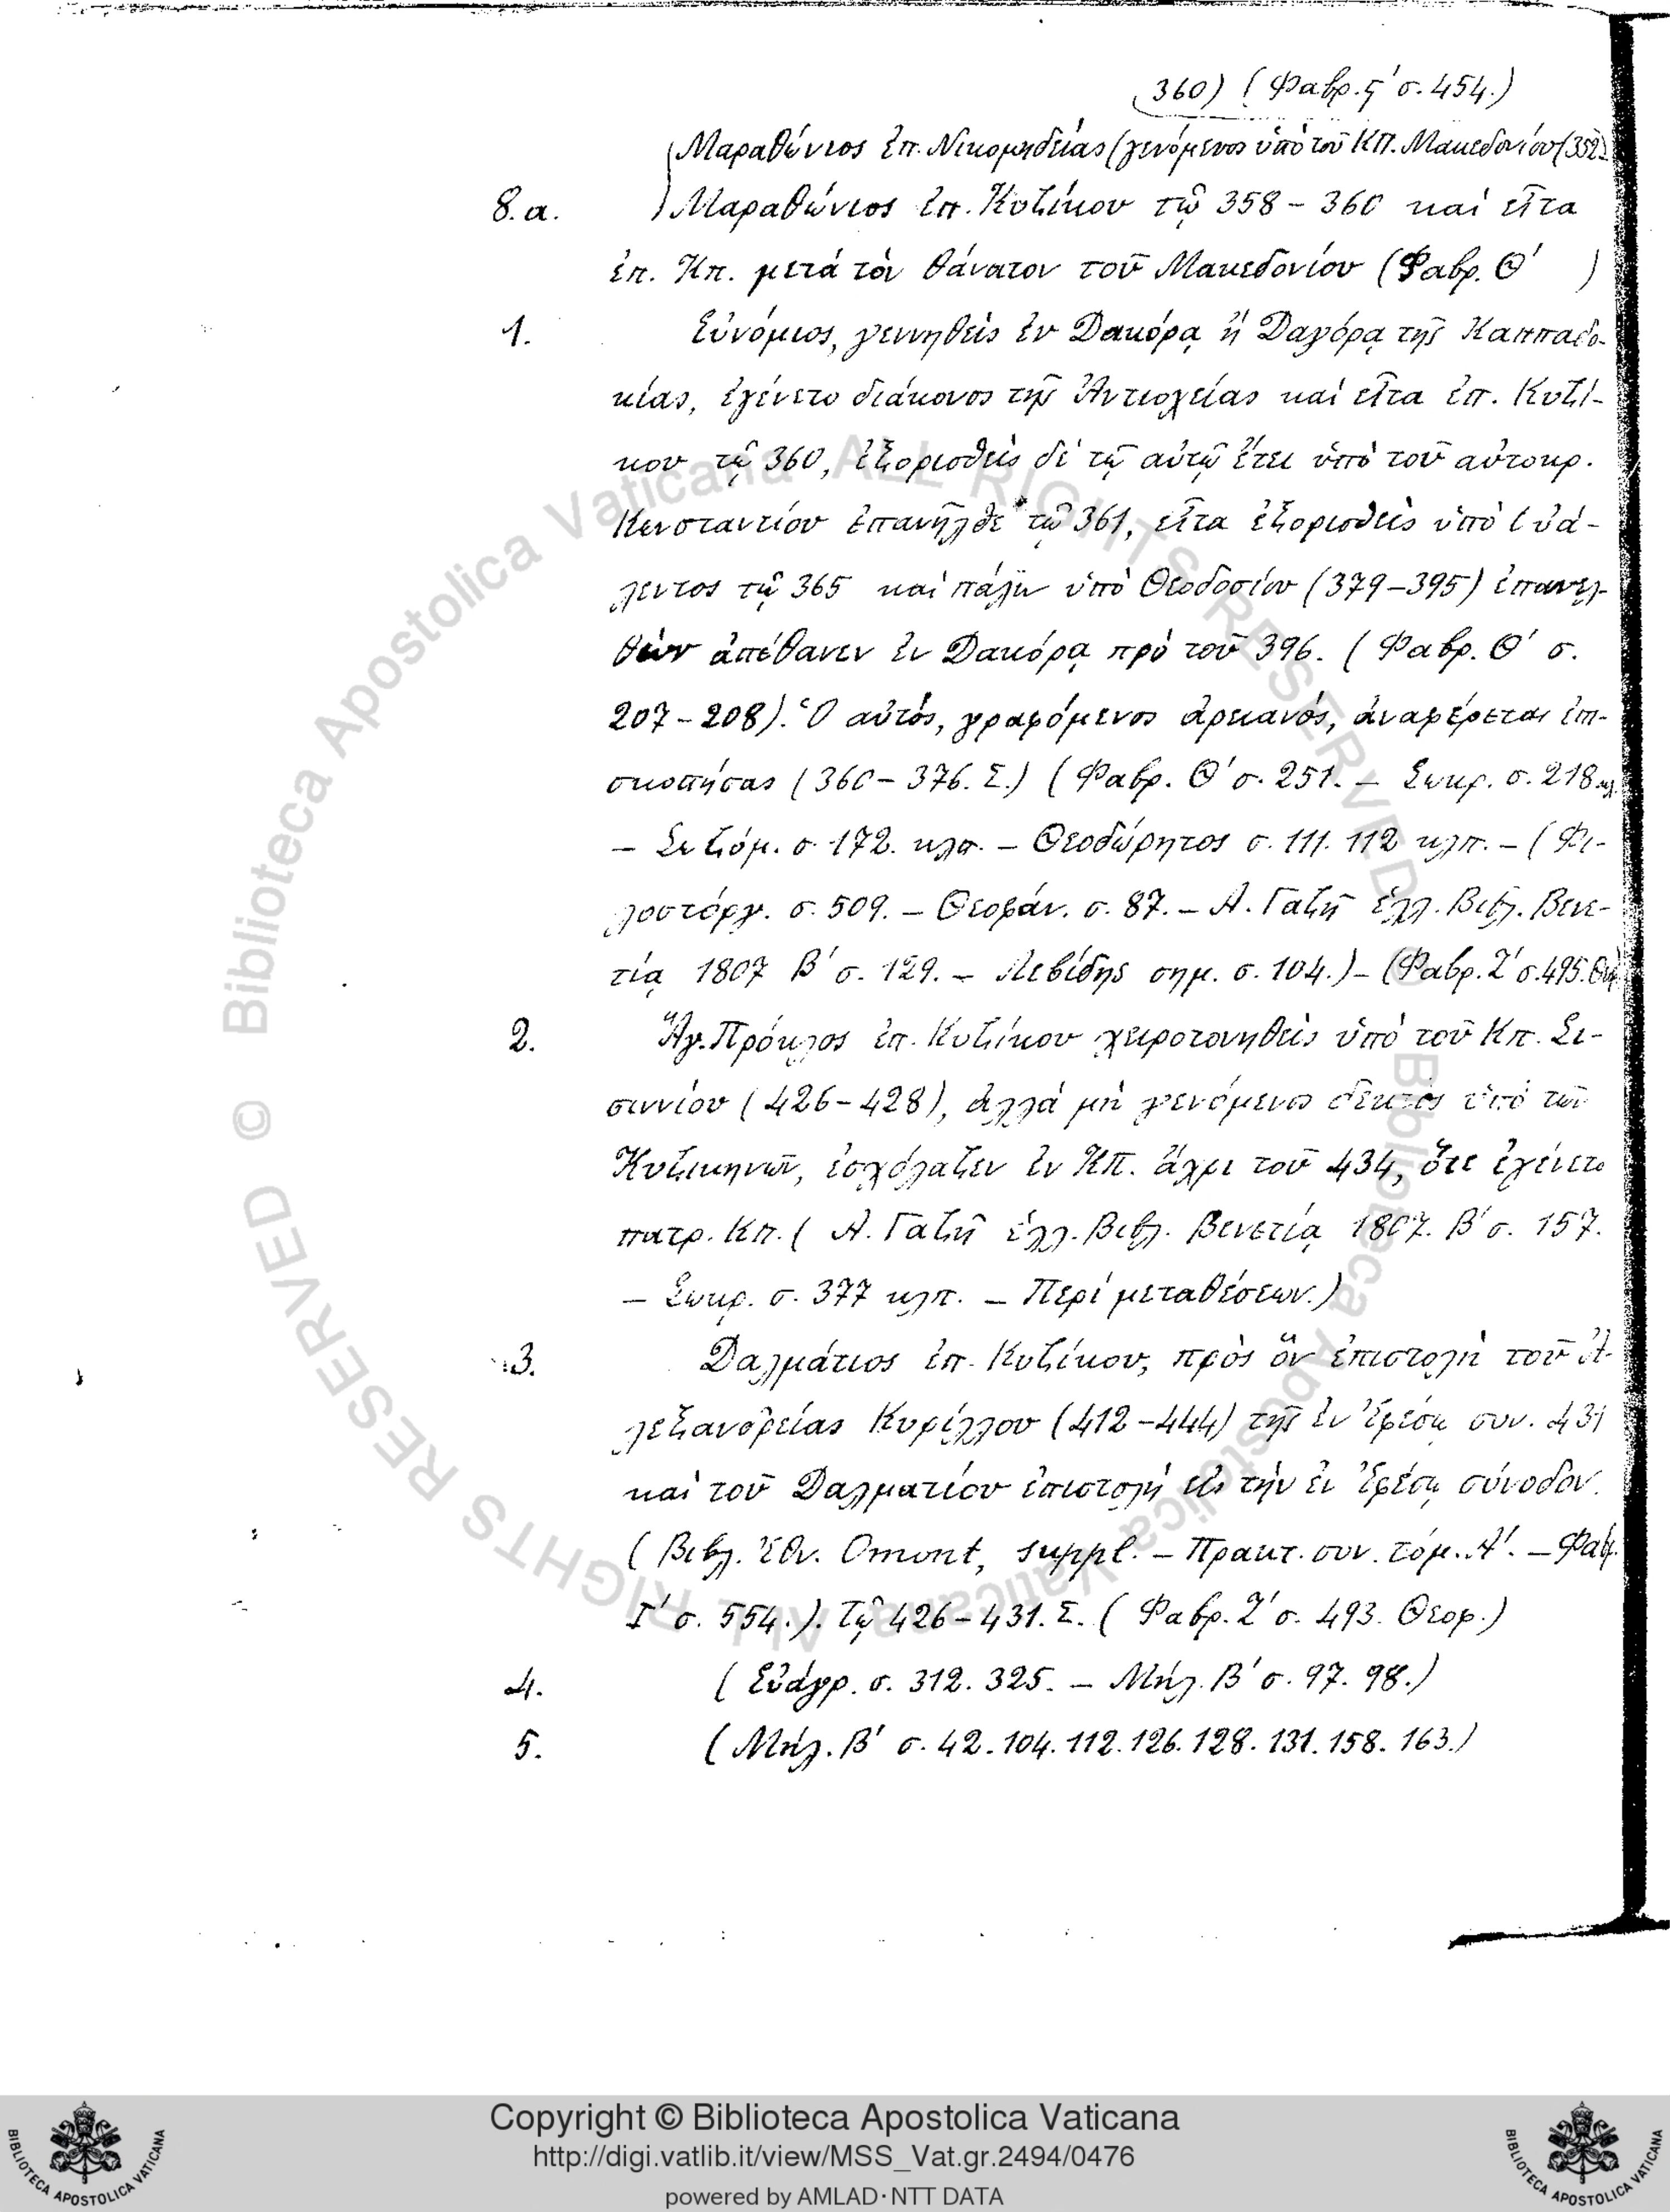 360) (Φαβρ. ϛ' σ. 454.)
Μαραθώνιος ἐπ. Νικομηδείας (γενόμενος ὑπὸ τοῦ ΚΠ. Μακεδονίου (352)
8.α. Μαραθώνιος ἐπ. Κυζίκου τῷ 358 – 360 καὶ εἶτα
ἐπ. Κπ. μετά τὸν θάνατον τοῦ Μακεδονίου (Φαβρ. Θ' )
1. Εὐνόμιος, γεννηθεὶς ἐν Δακόρᾳ ἢ Δαγόρᾳ τῆς Καππαδο-
κίας, ἐγένετο διάκονος τῆς Ἀντιοχείας καὶ εἶτα ἐπ. Κυζί-
κου τῷ 360, ἐξορισθεὶς δὲ τῷ αὐτῷ ἔτει ὑπὸ τοῦ αὐτοκρ.
Κωνσταντίου ἐπανῆλθε τῷ 361, εἶτα ἐξορισθεὶς ὑπὸ Οὐά-
λεντος τῷ 365 καὶ πάλιν ὑπὸ Θεοδοσίου (379–395) ἐπανελ-
θὼν ἀπέθανεν ἐν Δακόρᾳ πρὸ τοῦ 396. (Φαβρ. Θ' σ.
207–208). Ὁ αὐτός, γραφόμενος ἀρειανός, ἀναφέρεται ἐπι-
σκοπήσας (360–376. Σ.) (Φαβρ. Θ' σ. 251. – Σωκρ. σ. 218.
– Σωζόμ. σ. 172. κλπ. – Θεοδώρητος σ. 111. 112 κλπ. – (Φι-
λοστόργ. σ. 509. – Θεοφάν. σ. 87. – Α. Γαζῆ ἑλλ. Βιβλ. Βενε-
τίᾳ 1807 Β' σ. 129. – Λεβίδης σημ. σ. 104.) – (Φαβρ. Ζ' σ. 495.
2. Ἅγ. Πρόκλος ἐπ. Κυζίκου χειροτονηθεὶς ὑπὸ τοῦ Κπ. Σι-
σιννίου (426–428), ἀλλά μὴ γενόμενος δεκτὸς ὑπὸ τῶν
Κυζικηνῶν, ἐσχόλαζεν ἐν ΚΠ. ἄχρι τοῦ 434, ὅτε ἐγένετο
πατρ. Κπ. (Α. Γαζῆ ἑλλ. Βιβλ. Βενετίᾳ 1807. Β' σ. 157.
– Σωκρ. σ. 377 κλπ. – Περὶ μεταθέσεων.)
3. Δαλμάτιος ἐπ. Κυζίκου, πρὸς ὃν ἐπιστολὴ τοῦ Ἀ-
λεξανδρείας Κυρίλλου (412–444) τῆς ἐν Ἐφέσῳ συν. 431
καὶ τοῦ Δαλματίου ἐπιστολὴ εἰς τὴν ἐν Ἐφέσῳ σύνοδον.
(Βιβλ. Ἐθν. Omont, suppl. – Πρακτ. συν. τόμ. Α'. – Φαβρ.
Ι' σ. 554.). Τῷ 426–431. Σ. (Φαβρ. Ζ' σ. 493. Θεοφ.)
4. (Εὐάγρ. σ. 312. 325. – Μήλ. Β' σ. 97. 98.)
5. (Μήλ. Β' σ. 42. 104. 112. 126. 128. 131. 158. 163.)
© Biblioteca Apostolica Vaticana ALL RIGHTS RESERVED
© Biblioteca Apostolica Vaticana ALL RIGHTS RESERVED
Copyright © Biblioteca Apostolica Vaticana
http://digi.vatlib.it/view/MSS_Vat.gr.2494/0476
powered by AMLAD·NTT DATA
BIBLIOTECA APOSTOLICA VATICANA
BIBLIOTECA APOSTOLICA VATICANA